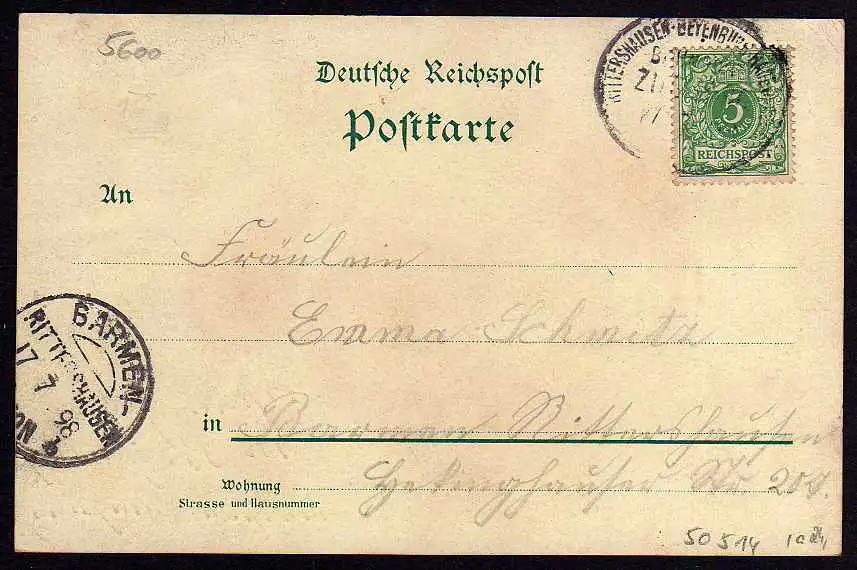 5600
Deutsche Reichspost
Postkarte
RITTERSHAUSEN-BEYENBURG
5
PFENNIG
REICHSPOST
An
Fräulein
Emma Schmitz
BARMEN-
RITTERSHAUSEN
17 7 98
in Barmen Rittershausen
Wohnung
Strasse und Hausnummer
Hekinghauser Str 209.
50514